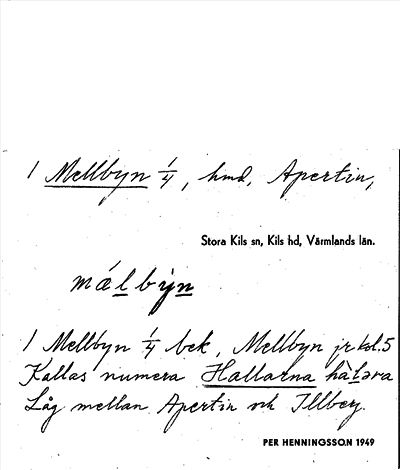 1 Mellbyn 1/4, hmd, Apertin,
Stora Kils sn, Kils hd, Värmlands län.
málbỳn
1 Mellbyn 1/4 bek, Mellbyn jrkol.5
Kallas numera Hallarna
Låg mellan Apertin och Illberg.
PER HENNINGSSON 1949